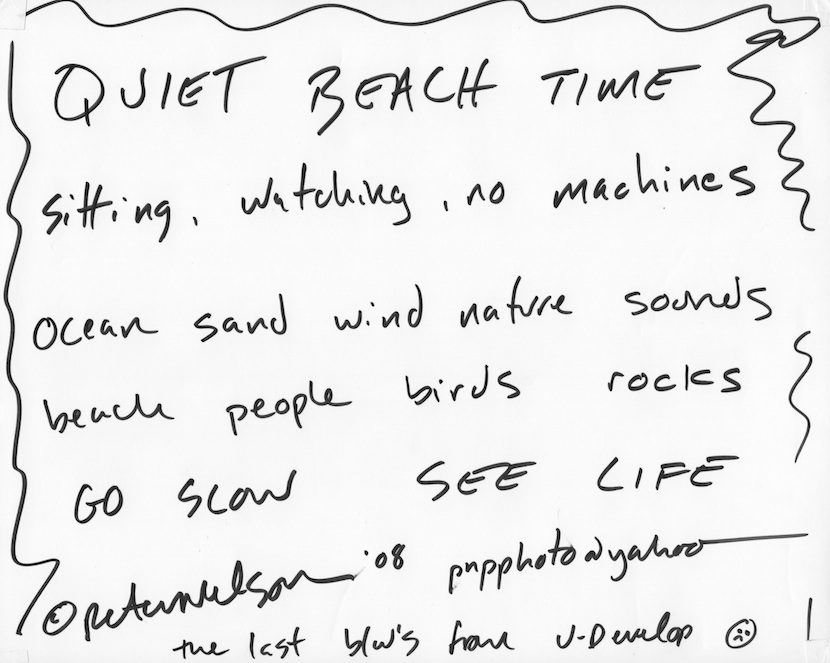 QUIET BEACH TIME
sitting, watching, no machines
ocean sand wind nature sounds
beach people birds rocks
GO SLOW SEE LIFE
© peternelson '08 pnpphoto@yahoo
the last b/w's from U-Develop ☹